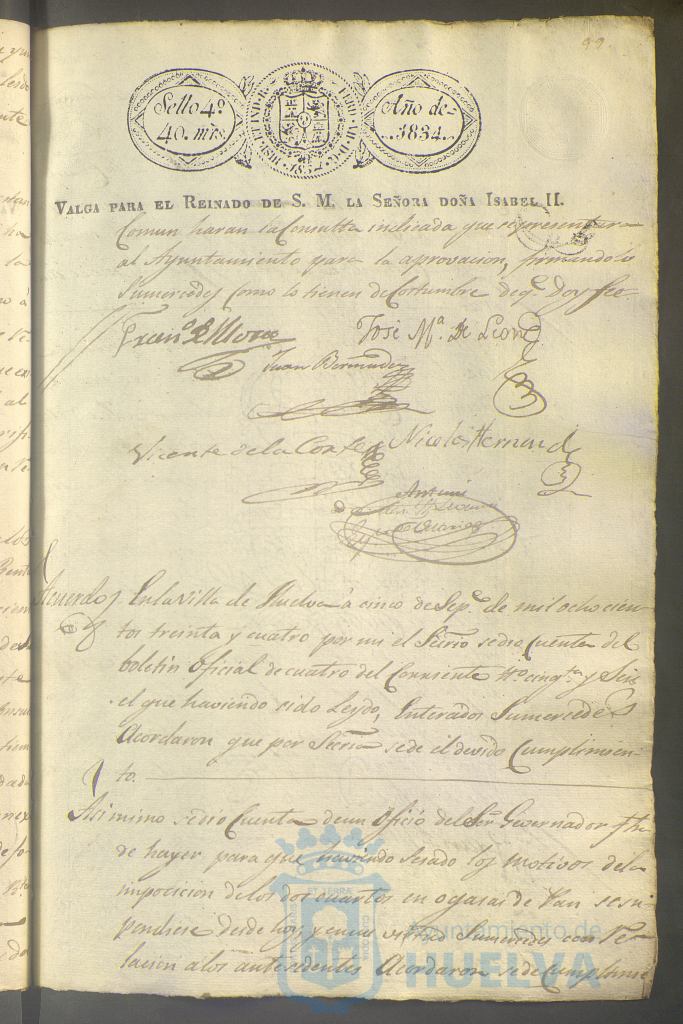 89.
Sello 4º
40. mrs
HISP. ET IND. R.
FERD. VII. D. G.
1834
Año de
1834.
VALGA PARA EL REINADO DE S. M. LA SEÑORA DOÑA ISABEL II.
Comun haran la Consulta indicada que representara
al Ayuntamiento para la aprovacion, firmandolo
Sumercedes como lo tienen de Costumbre de q.e Doy fee
José Mª. De Leon
Juan Bermudez
Vicente de la Corte
Nicolas Hernandz
Antoni
Acuerdo
En la Villa de Huelva á cinco de Sep.e de mil ocho cien-
tos treinta y cuatro por mi el Srio se dio Cuenta del
boletin Oficial de cuatro del Corriente Nº cinq.ta y Seis
el que haviendo sido Leydo, Enterados Sumercedes
Acordaron que por Sria se de el devido Cumplimien-
to.
Asimimo se dio Cuenta de un Oficio del Sr Governador fho
de hayer para que haviendo Sesado los motivos de la
imposicion de los dos cuartos en ogasas de Pan se sus-
pendiese desde hoy, y en su vista Sumercedes con re-
lacion a los antesedentes Acordaron se de Cumplimie
Ayuntamiento de
HUELVA